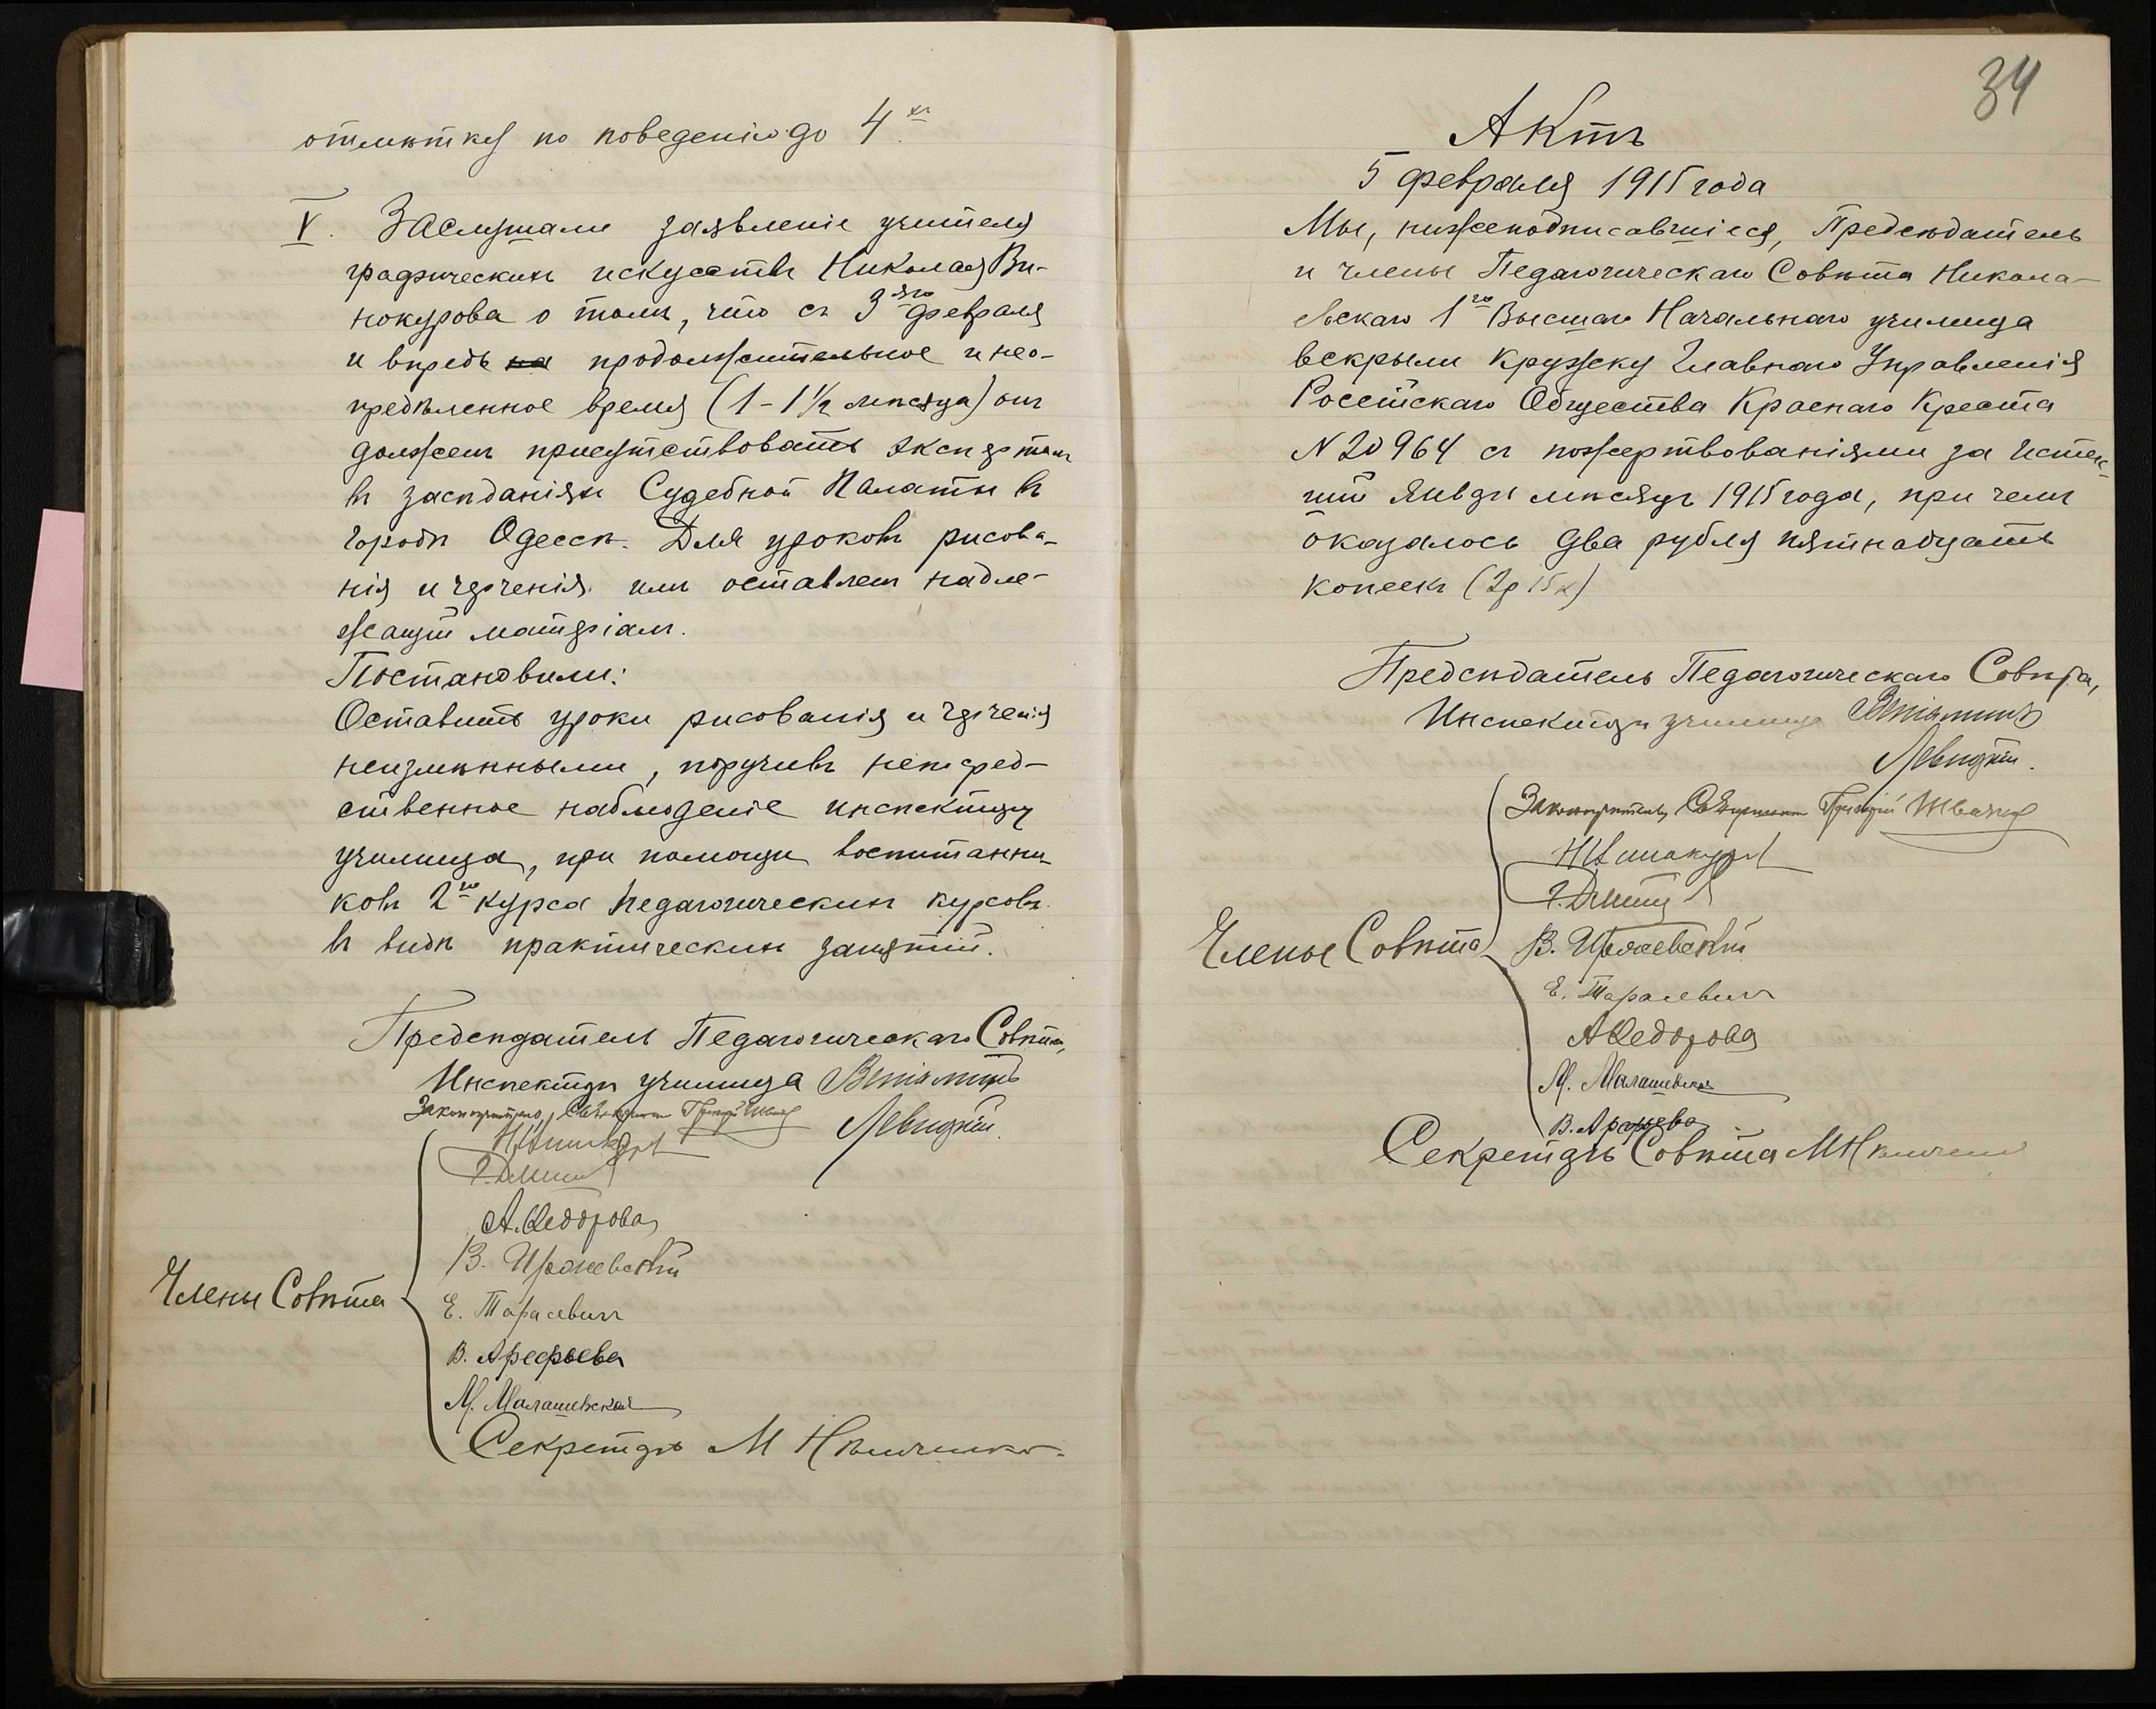 отмѣтку по поведенію до 4хъ.
V. Заслушали заявленіе учителя
графическихъ искусствъ Николая Ви-
нокурова о томъ, что съ 3яго февраля
и впредь на продолжительное и нео-
предѣленное время (1-1½ мѣсяца) онъ
долженъ присутствовать экспертомъ
въ засѣданіяхъ Судебной Палаты въ
городѣ Одессѣ. Для уроковъ рисова-
нія и черченія имъ оставленъ надле-
жащій матеріалъ.
Постановили:
Оставить уроки рисованія и черченія
неизмѣнными, поручивъ непосред-
ственное наблюденіе инспектору
училища, при помощи воспитанни-
ковъ 2го курса педагогическихъ курсовъ
въ видѣ практическихъ занятій.
Предсѣдатель Педагогическаго Совѣта,
Инспекторъ училища Веніаминъ
Левицкій.
Законоучитель, Священникъ Григорій
А. Федорова
Члены Совѣта
В. Иржевскій
Е. Тарасевичъ
В. Арефьева
М. Малашевская
Секретарь М
34
Актъ
5 февраля 1915 года
Мы, нижеподписавшіеся, Предсѣдатель
и члены Педагогическаго Совѣта Никола-
евскаго 1го Высшаго Начальнаго училища
вскрыли кружку Главнаго Управленія
Россійскаго Общества Краснаго Креста
N 20964 съ пожертвованіями за истек-
шій Январь мѣсяцъ 1915 года, при чемъ
оказалось два рубля пятнадцать
копеекъ (2р 15к)
Предсѣдатель Педагогическаго Совѣта,
Инспекторъ училища Веніаминъ
Левицкій.
Законоучитель, Священникъ Григорій
Члены Совѣта
В. Иржевскій
Е. Тарасевичъ
А Федорова
М. Малашевская
В. Арефьева
Секретарь Совѣта М